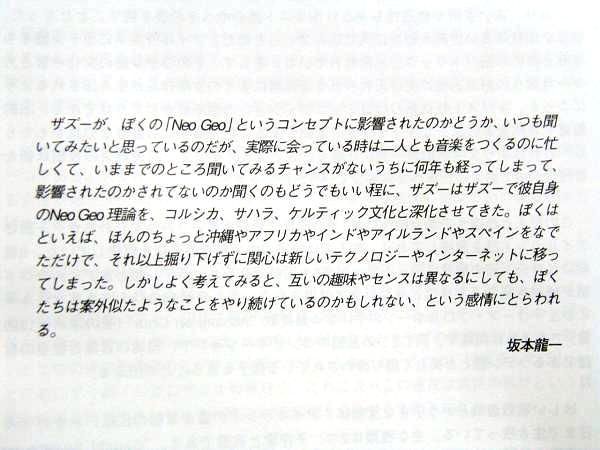 ザズーが、ぼくの「Neo Geo」というコンセプトに影響されたのかどうか、いつも聞
いてみたいと思っているのだが、実際に会っている時は二人とも音楽をつくるのに忙
しくて、いままでのところ聞いてみるチャンスがないうちに何年も経ってしまって、
影響されたのかされてないのか聞くのもどうでもいい程に、ザズーはザズーで彼自身
のNeo Geo 理論を、コルシカ、サハラ、ケルティック文化と深化させてきた。ぼくは
といえば、ほんのちょっと沖縄やアフリカやインドやアイルランドやスペインをなで
ただけで、それ以上掘り下げずに関心は新しいテクノロジーやインターネットに移っ
てしまった。しかしよく考えてみると、互いの趣味やセンスは異なるにしても、ぼく
たちは案外似たようなことをやり続けているのかもしれない、という感情にとらわれ
る。
坂本龍一